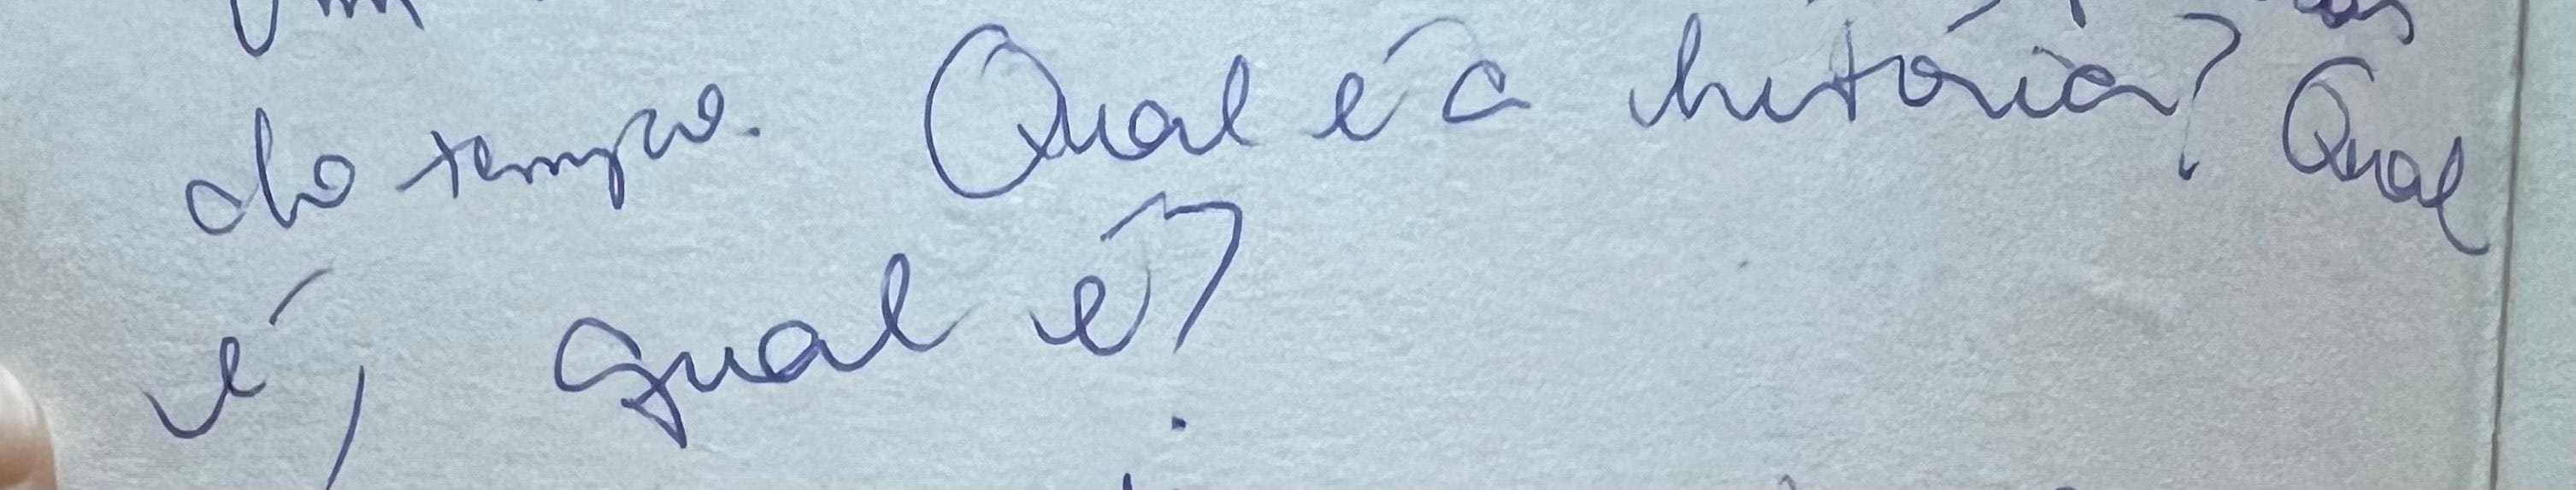 do tempo. Qual é a história? Qual
é, qual é?